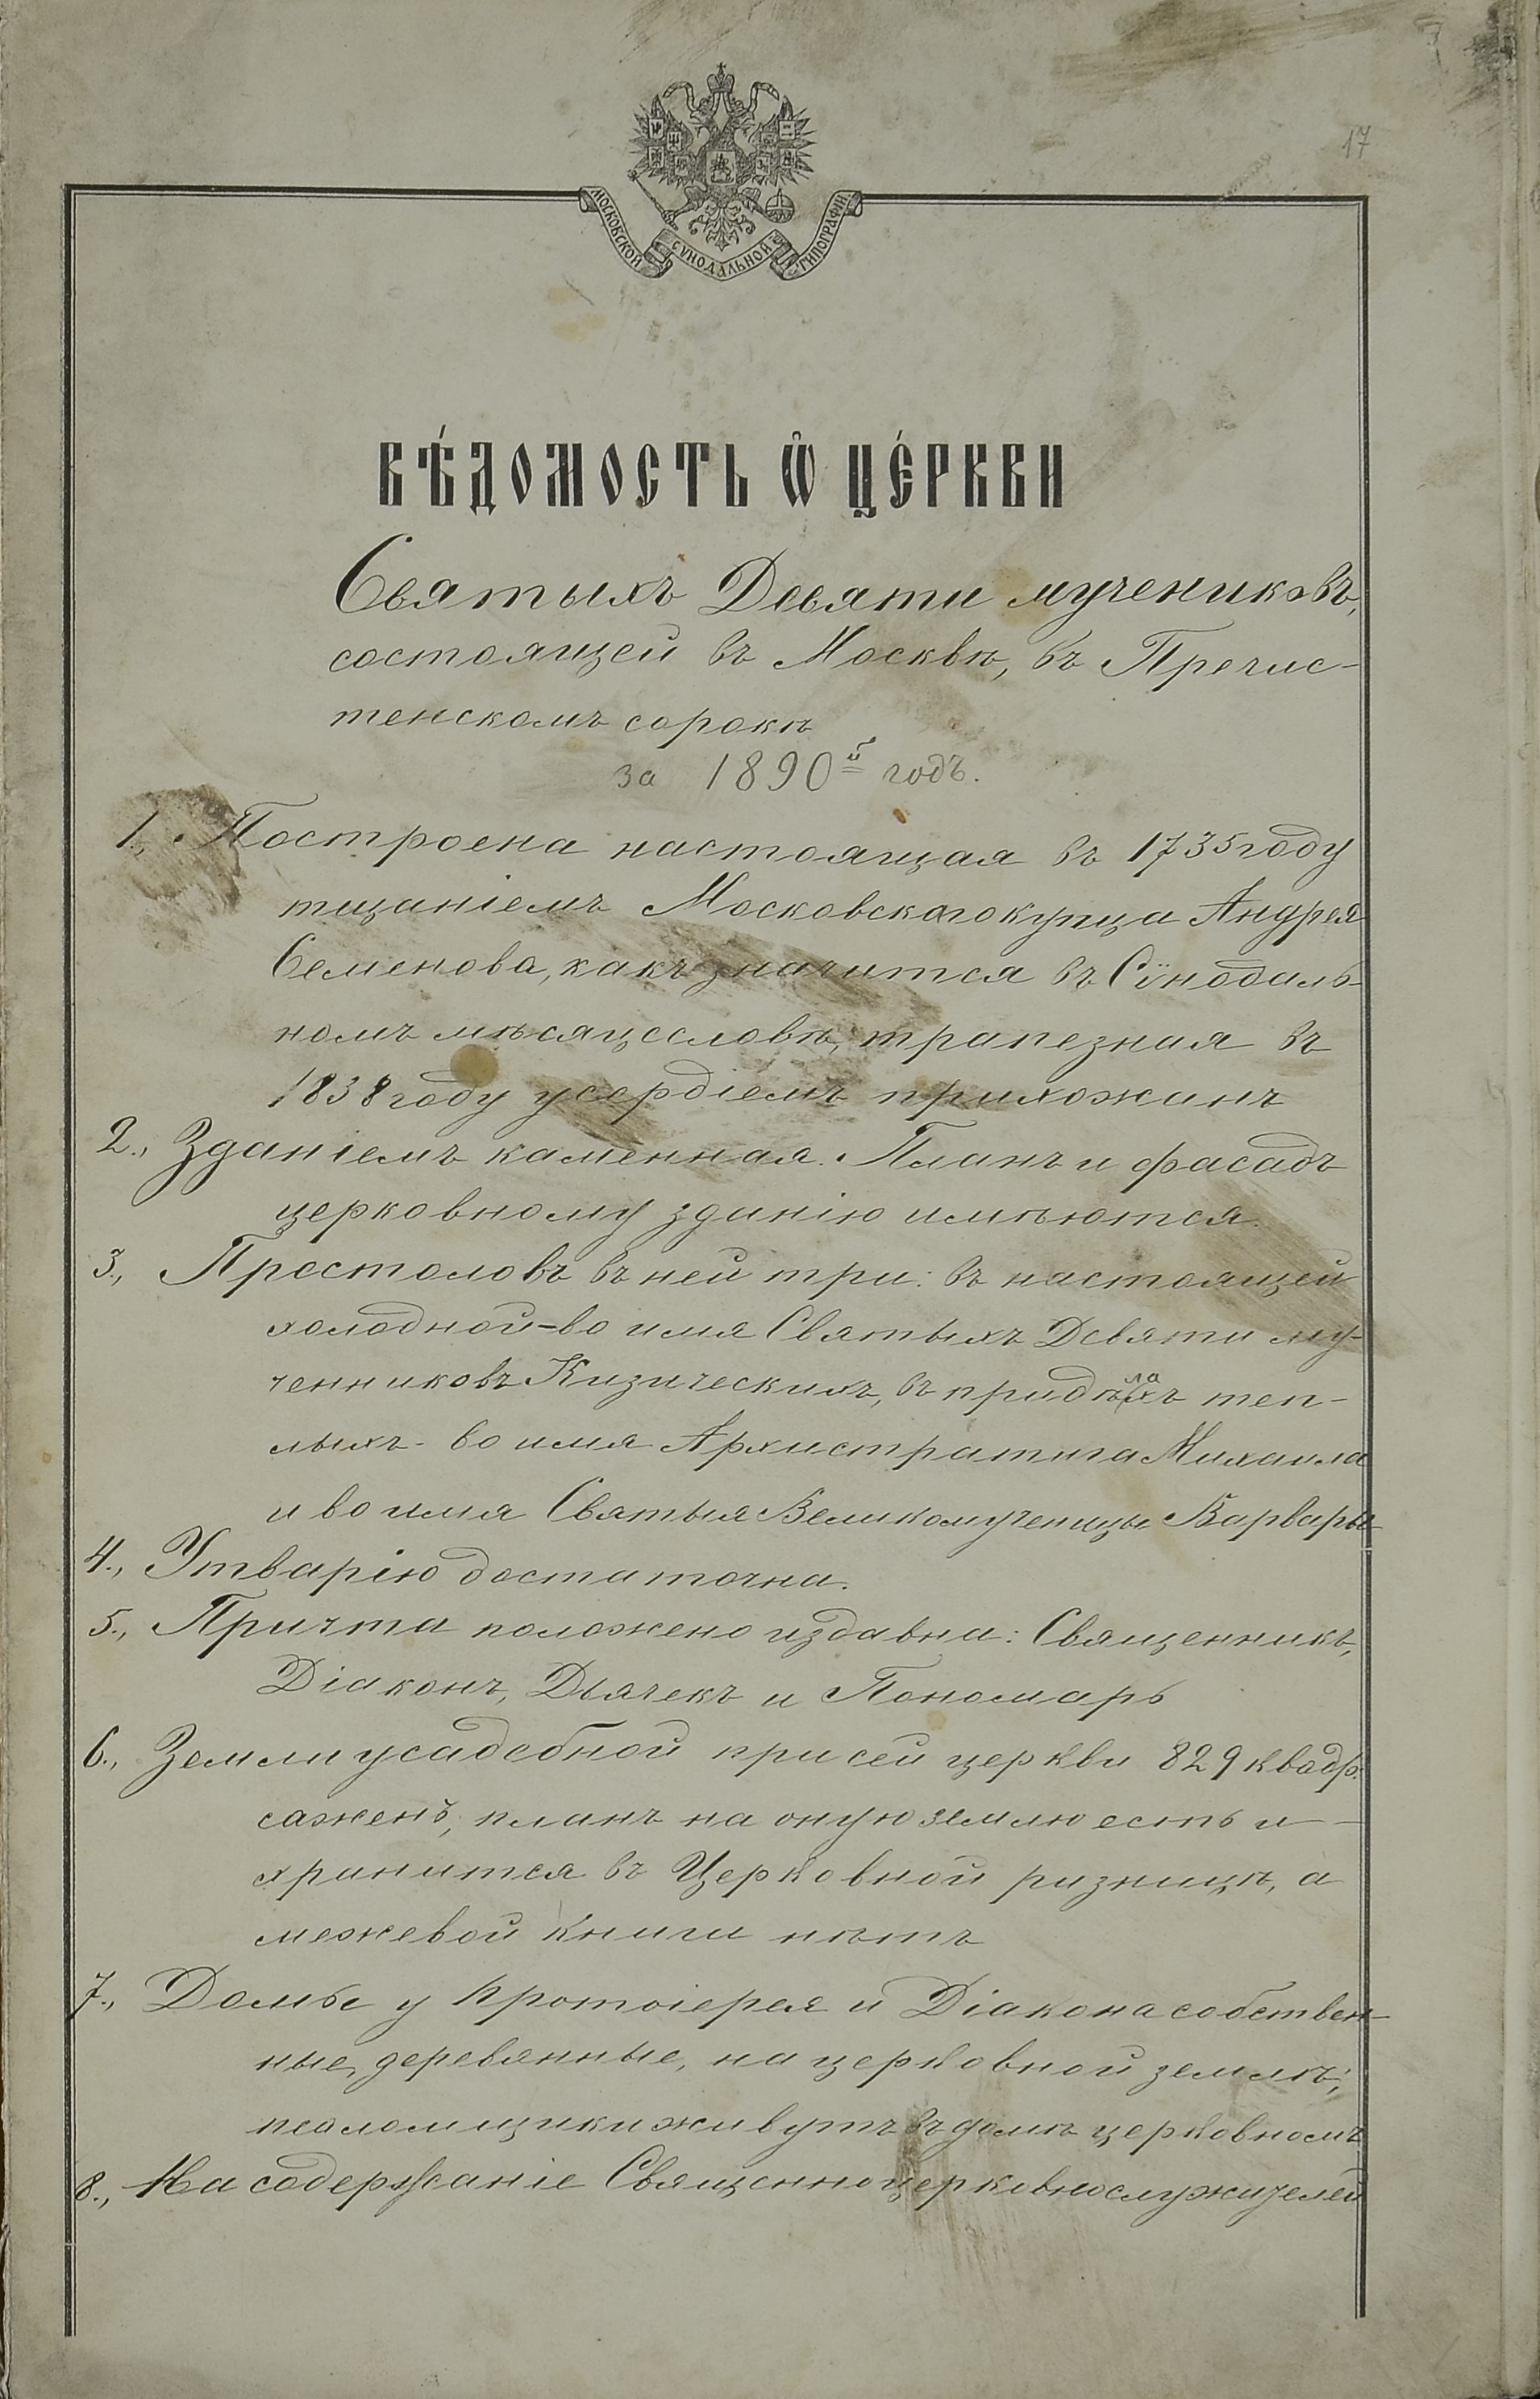 17
МОСКОВСКОЙ СѴНОДАЛЬНОЙ ТИПОГРАФІИ
ВѢ́ДОМОСТЬ Ѽ ЦЕ́РКВИ
Святыхъ Девяти мучениковъ,
состоящей въ Москвѣ, въ Пречис-
тенскомъ сорокѣ
за 1890й годъ.
1., Построена настоящая въ 1735 году
тщаніемъ Московскаго купца Андрея
Семенова, какъ значится въ Сѵнодаль-
номъ мѣсяцесловѣ, трапезная въ
1838 году усердіемъ прихожанъ
2., Зданіемъ каменная. Планъ и фасадъ
церковному зданію имѣются.
3., Престоловъ въ ней три: въ настоящей
холодной-во имя Святыхъ Девяти му-
чениковъ Кизическихъ, въ придѣлахъ теп-
лыхъ- во имя Архистратига Михаила
и во имя Святыя Великомученицы Варвары
4., Утварію достаточна.
5., Причта положено издавна: Священникъ,
Діаконъ, Дьячекъ и Пономарь
6., Земли усадебной при сей церкви 829 квадр.
саженъ, планъ на оную землю есть и -
хранится въ Церковной ризницѣ, а
межевой книги нѣтъ
7., Домы у Протоіерея и Діакона собствен-
ные, деревянные, на церковной землѣ;
псаломщики живутъ въ домѣ церковномъ
8., На содержаніе Священноцерковнослужителей